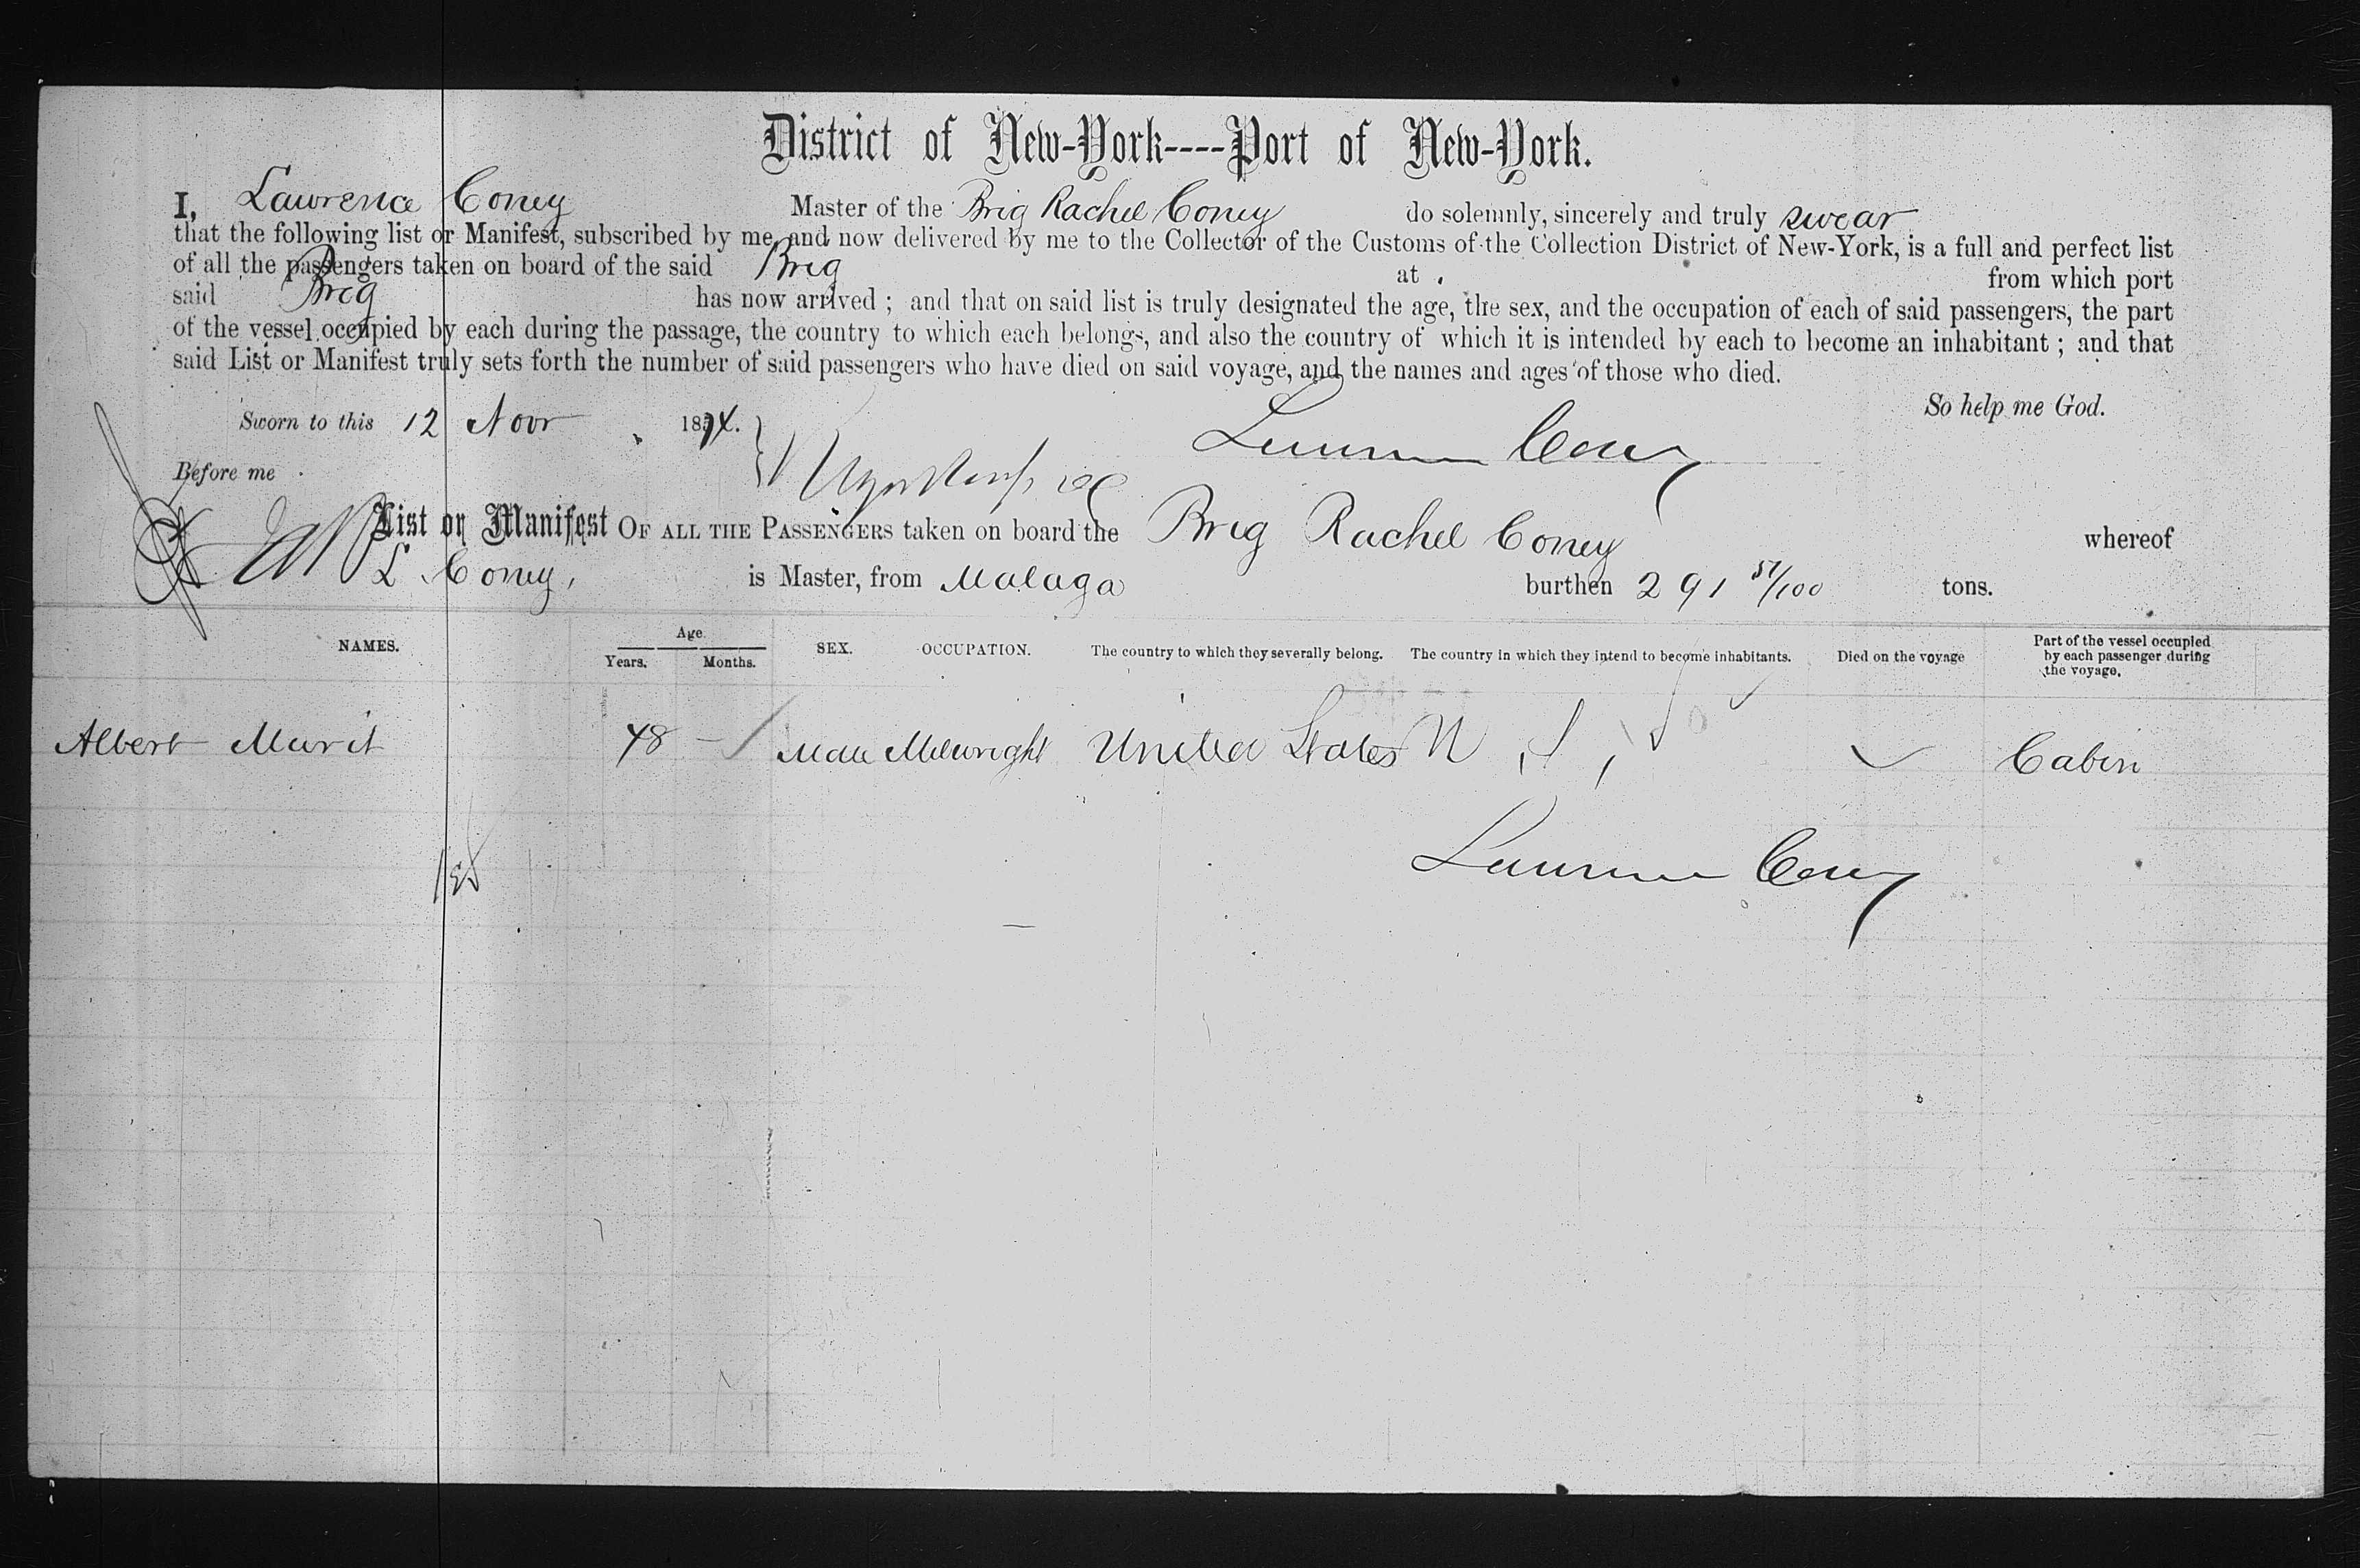 District of New-York----Port of New-York.
I, Lawrence Coney Master of the Brig Rachel Coney do solemnly, sincerely and truly swear
that the following list or Manifest, subscribed by me and now delivered by me to the Collector of the Customs of the Collection District of New-York, is a full and perfect list
of all the passengers taken on board of the said Brig at from which port
said Brig has now arrived ; and that on said list is truly designated the age, the sex, and the occupation of each of said passengers, the part
of the vessel occupied by each during the passage, the country to which each belongs, and also the country of which it is intended by each to become an inhabitant ; and that
said List or Manifest truly sets forth the number of said passengers who have died on said voyage, and the names and ages of those who died.
So help me God.
Sworn to this 12 Novr 1874. Lawrence Coney
Before me
List or Manifest OF ALL THE PASSENGERS taken on board the Brig Rachel Coney whereof
L Coney, is Master, from Malaga burthen 291 57/100 tons.
NAMES. Age Years. Months. SEX. OCCUPATION. The country to which they severally belong. The country in which they intend to become inhabitants. Died on the voyage Part of the vessel occupied by each passenger during the voyage.
Albert 48 - Male Milwright United States Cabin
Lawrence Coney